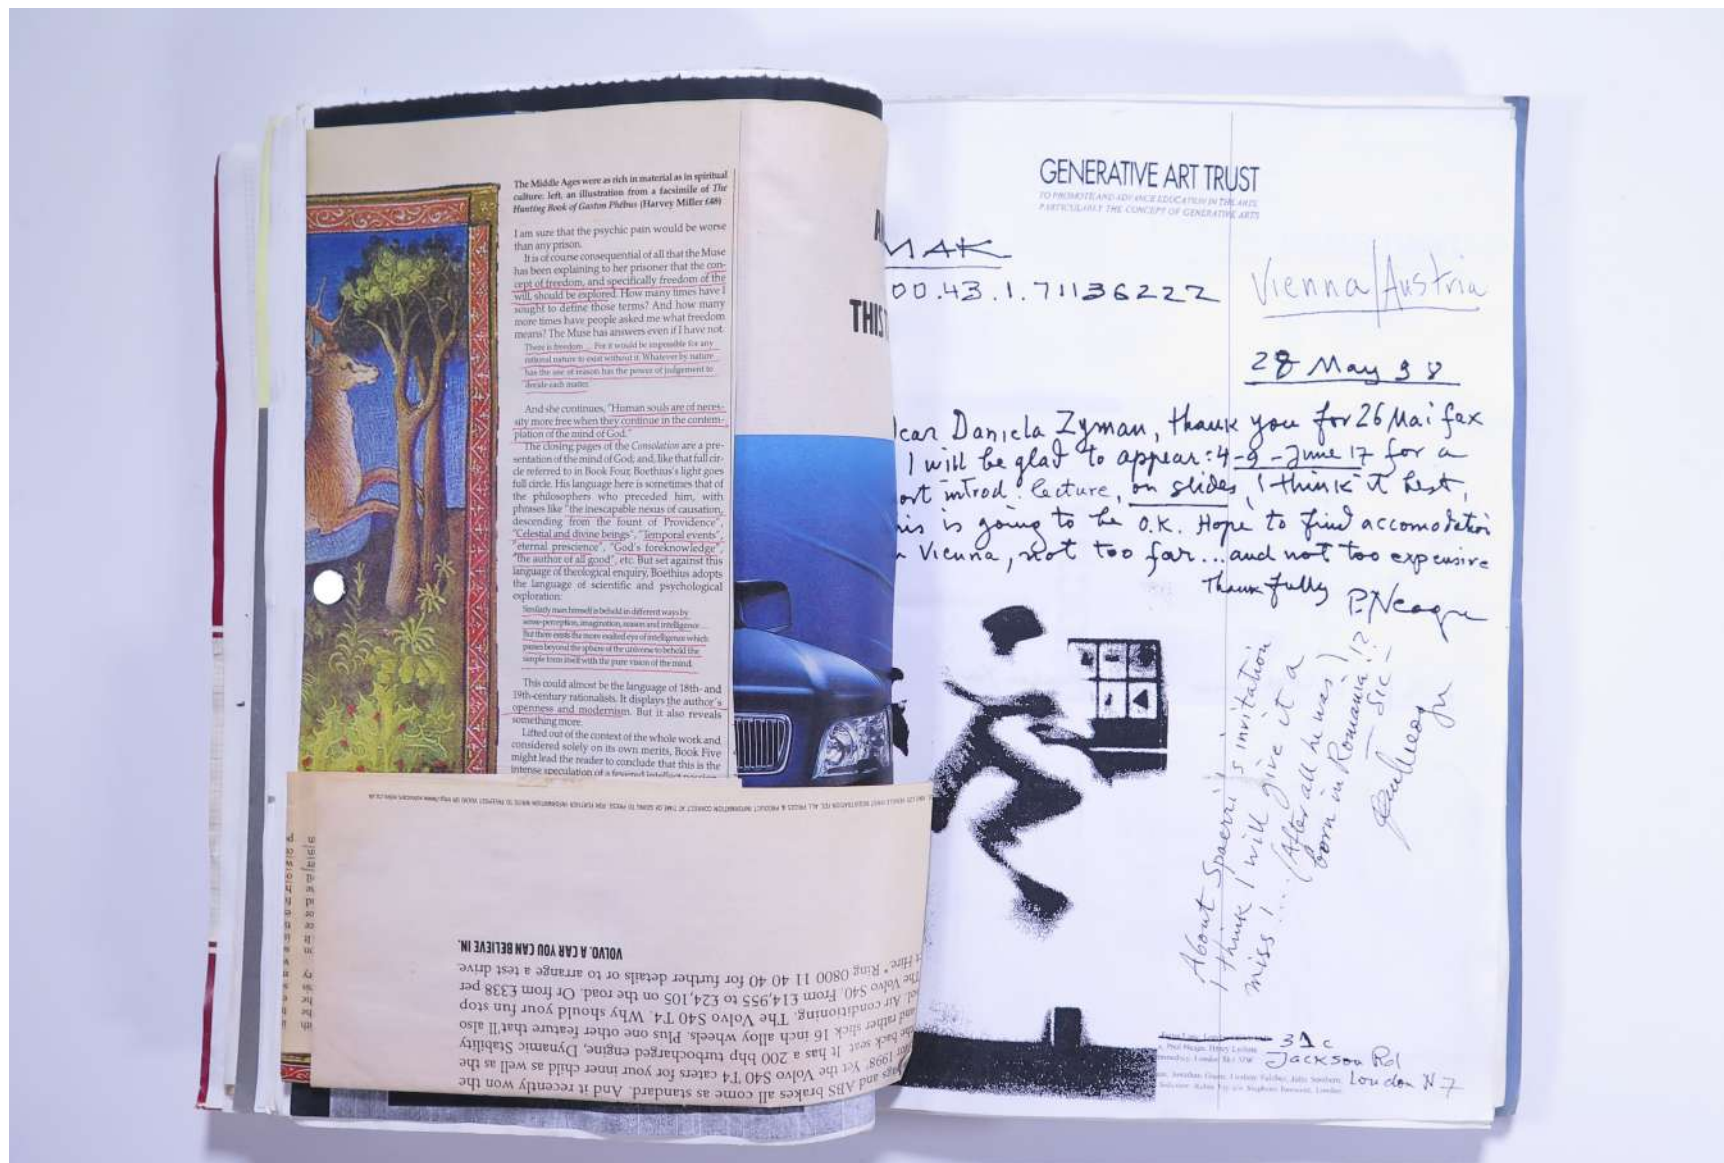 The Middle Ages were as rich in material as in spiritual
culture: left, an illustration from a facsimile of The
Hunting Book of Gaston Phébus (Harvey Miller £48)
I am sure that the psychic pain would be worse
than any prison.
It is of course consequential of all that the Muse
has been explaining to her prisoner that the con-
cept of freedom, and specifically freedom of the
will, should be explored. How many times have I
sought to define those terms? And how many
more times have people asked me what freedom
means? The Muse has answers even if I have not.
There is freedom ... For it would be impossible for any
rational nature to exist without it. Whatever by nature
has the use of reason has the power of judgement to
decide each matter.
And she continues, "Human souls are of neces-
sity more free when they continue in the contem-
plation of the mind of God."
The closing pages of the Consolation are a pre-
sentation of the mind of God; and, like that full cir-
cle referred to in Book Four, Boethius's light goes
full circle. His language here is sometimes that of
the philosophers who preceded him, with
phrases like "the inescapable nexus of causation,
descending from the fount of Providence",
"Celestial and divine beings", "Temporal events",
"eternal prescience", "God's foreknowledge",
"the author of all good", etc. But set against this
language of theological enquiry, Boethius adopts
the language of scientific and psychological
exploration:
Similarly man himself is beheld in different ways by
sense-perception, imagination, reason and intelligence ...
But there exists the more exalted eye of intelligence which
passes beyond the sphere of the universe to behold the
simple form itself with the pure vision of the mind.
This could almost be the language of 18th- and
19th-century rationalists. It displays the author's
openness and modernism. But it also reveals
something more.
Lifted out of the context of the whole work and
considered solely on its own merits, Book Five
might lead the reader to conclude that this is the
intense speculation of a fevered intellect
THIS
and ABS brakes all come as standard. And it recently won the
1998'. Yet the Volvo S40 T4 caters for your inner child as well as the
the back seat. It has a 200 bhp turbocharged engine, Dynamic Stability
and rather slick 16 inch alloy wheels. Plus one other feature that'll also
Air conditioning. The Volvo S40 T4. Why should your fun stop
The Volvo S40. From £14,955 to £24,105 on the road. Or from £338 per
Hire.* Ring 0800 11 40 40 for further details or to arrange a test drive
VOLVO. A CAR YOU CAN BELIEVE IN.
GENERATIVE ART TRUST
TO PROMOTE AND ADVANCE EDUCATION IN THE ARTS
PARTICULARLY THE CONCEPT OF GENERATIVE ARTS
MAK
00.43.1.71136222
Vienna/Austria
28 May 98
ear Daniela Zyman, thank you for 26 Mai fax
I will be glad to appear: 4-9-June 17 for a
ort introd. lecture, on slides, I think it best,
is is going to be O.K. Hope to find accomodation
Vienna, not too far... and not too expensive
Thankfully P.Neagu
About Spoerri's invitation
I think I will give it a
miss!.... (After all he was
born in Romania!?)
- Sic -
31c
Jackson Rd
London N7